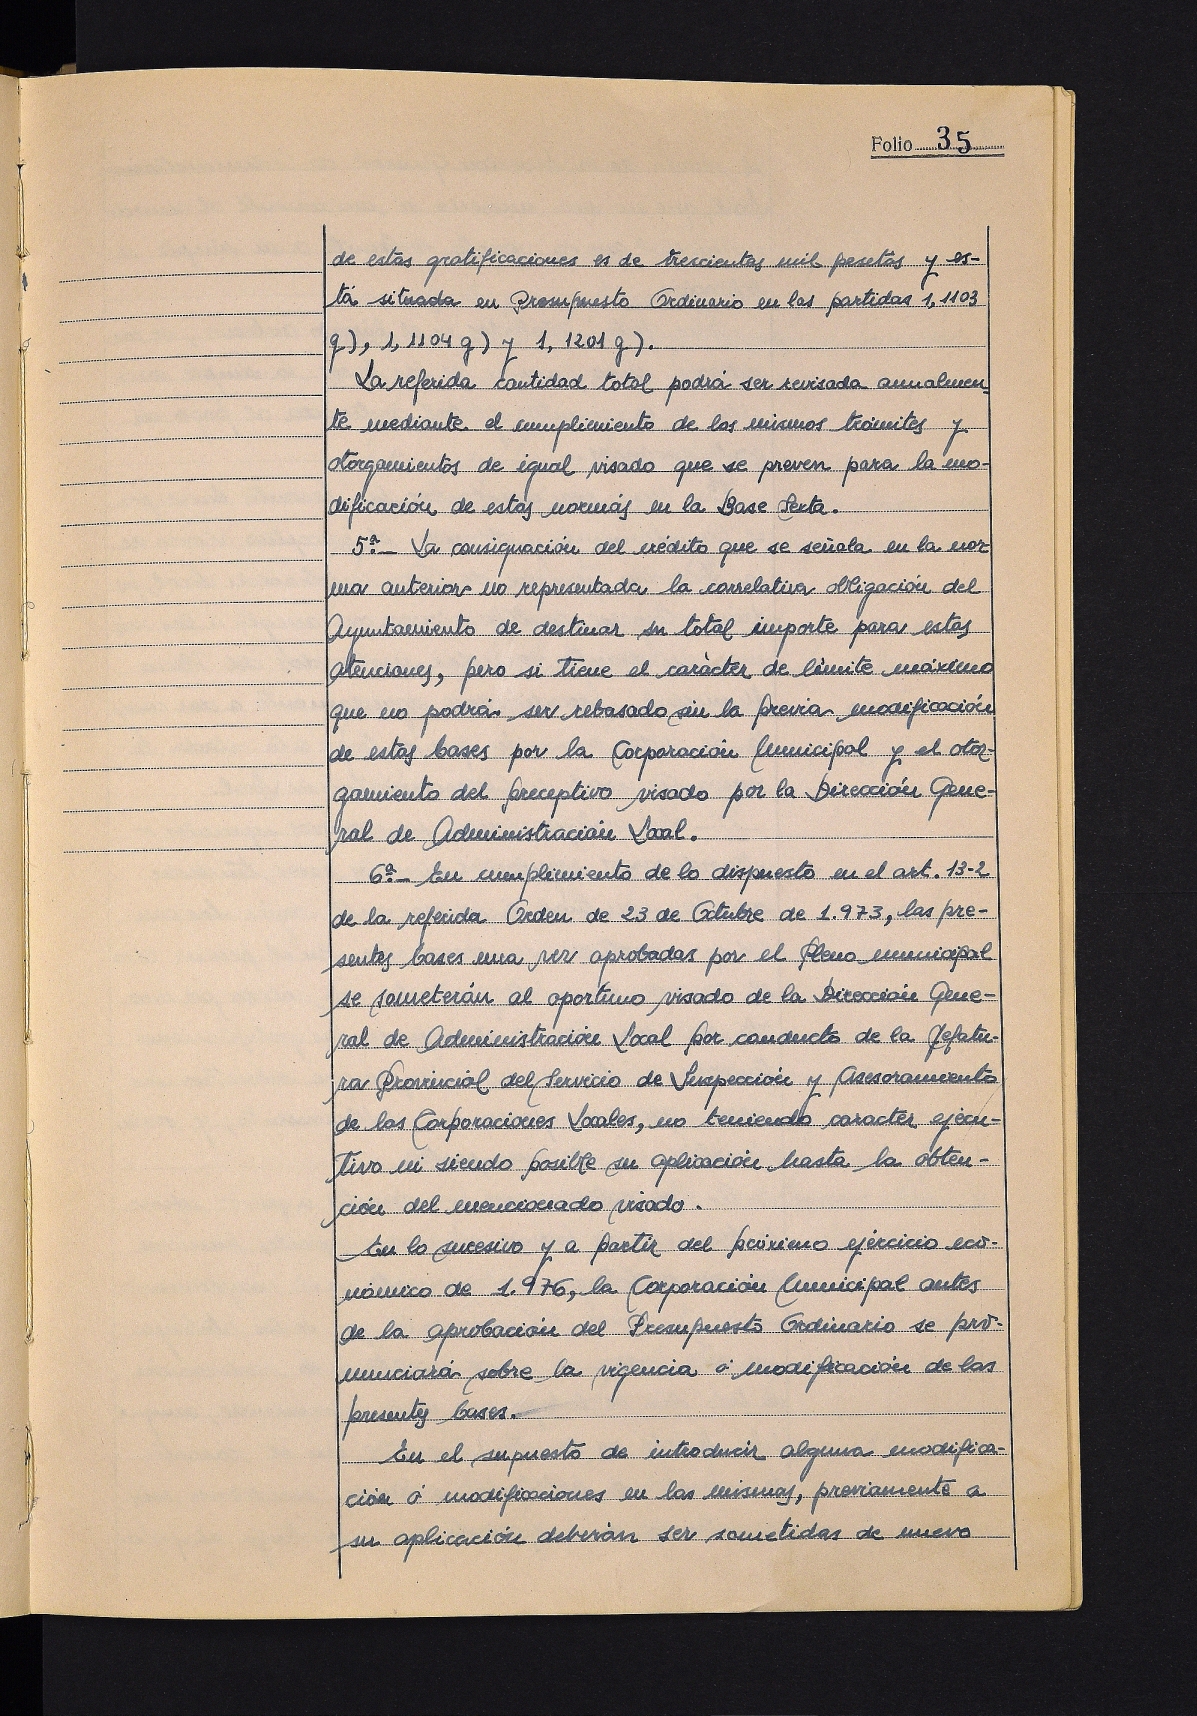 Folio 35
de estas gratificaciones es de trescientas mil pesetas y es-
tá situada en Presupuesto Ordinario en las partidas 1,1103
g), 1,1104 g) y 1, 1201 g).
La referida cantidad total podrá ser revisada anualmen-
te mediante el cumplimiento de los mismos trámites y
otorgamientos de igual visado que se preven para la mo-
dificación de estas normás en la Base Sexta.
5ª.- La consignación del crédito que se señala en la nor
ma anterior no representada la correlativa obligación del
Ayuntamiento de destinar su total importe para estas
atenciones, pero si tiene el carácter de límite máximo
que no podrá ser rebasado sin la previa modificación
de estas bases por la Corporación Municipal y el otor-
gamiento del preceptivo visado por la Dirección Gene-
ral de Administración Local.
6ª.- En cumplimiento de lo dispuesto en el art. 13-2
de la referida Orden de 23 de Octubre de 1.973, las pre-
sentes bases una vez aprobadas por el Pleno municipal
se someterán al oportuno visado de la Dirección Gene-
ral de Administración Local por conducto de la Jefatu-
ra Provincial del Servicio de Inspección y Asesoramiento
de las Corporaciones Locales, no teniendo caracter ejecu-
tivo ni siendo posible su aplicación hasta la obten-
ción del mencionado visado.
En lo sucesivo y a partir del próximo ejercicio eco-
nómico de 1.976, la Corporación Municipal antes
de la aprobación del Presupuesto Ordinario se pro-
nunciará sobre la vigencia ó modificación de las
presentes bases.-
En el supuesto de introducir alguna modifica-
ción ó modificaciones en las mismas, previamente a
su aplicación deberán ser sometidas de nuevo